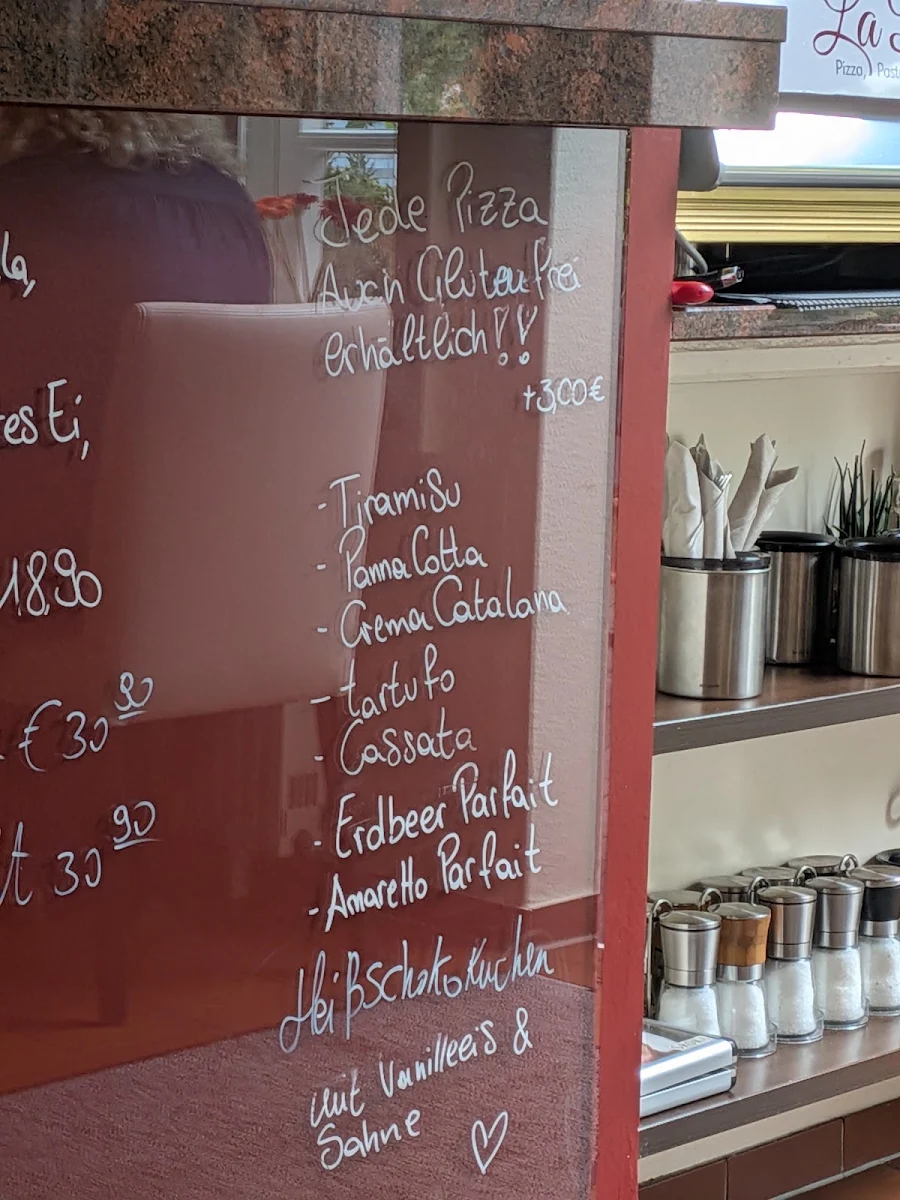 La
Pizza, Past
la,
es Ei,
18,90
€ 30 90
30 90
Jede Pizza
Auch Glutenfrei
erhältlich!!
+3,00€
- Tiramisu
- Panna Cotta
- Crema Catalana
- tartufo
- Cassata
- Erdbeer Parfait
- Amaretto Parfait
Heißschokokuchen
mit Vanilleeis &
Sahne ♡